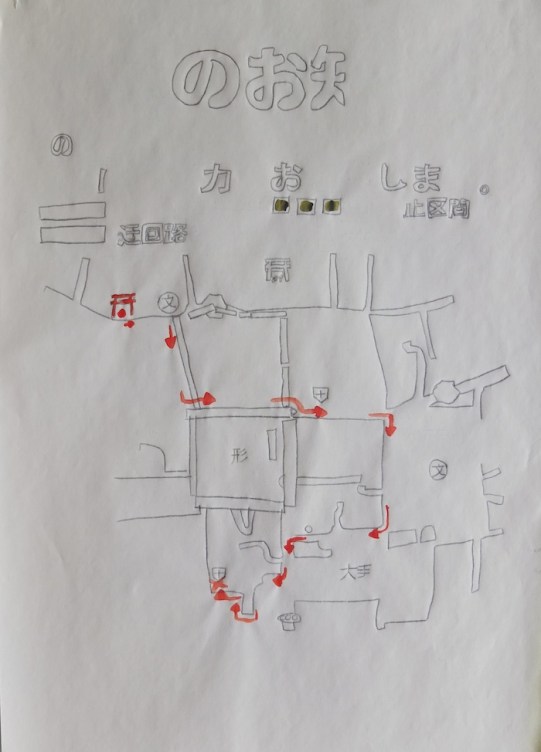 のお知
の
力 お しま 。
止区間
迂回路
文
形
文
大手